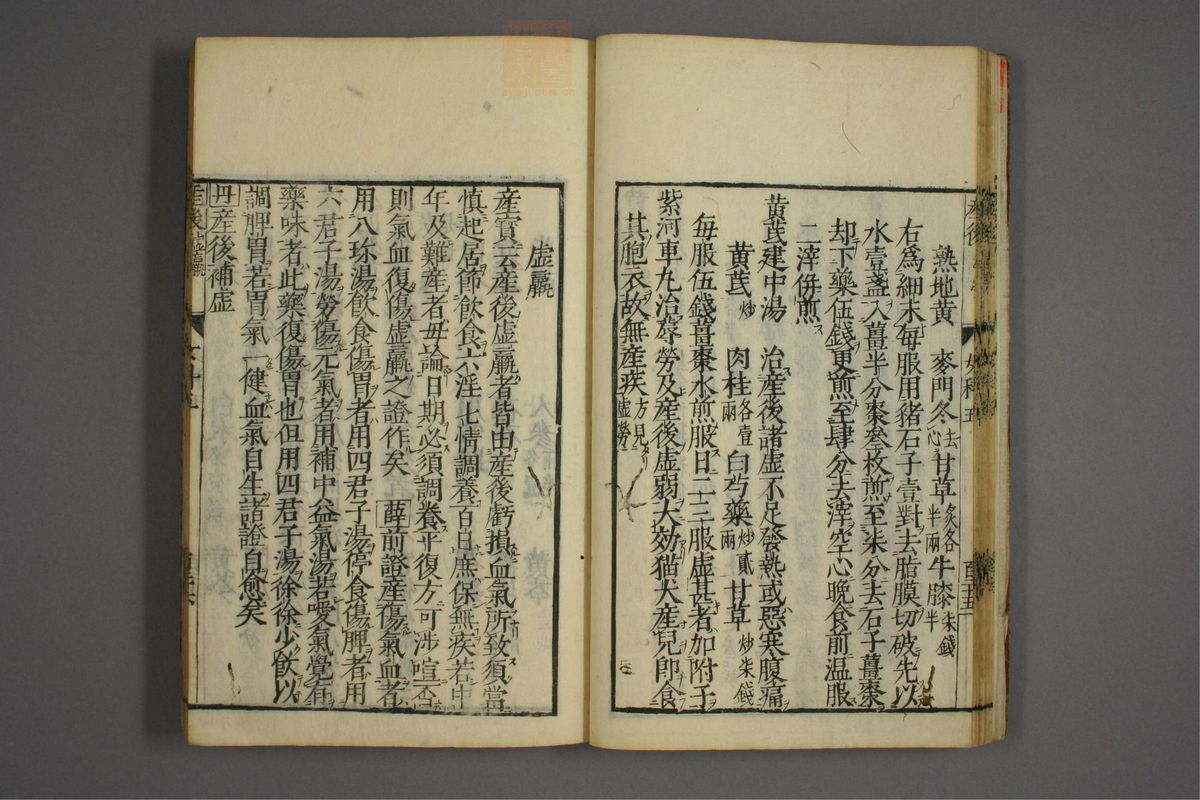 熟地黄 麥門冬去心 甘草炙各半兩 牛膝柒錢半
右爲細末每服用豬石子壹對去脂膜切破先以
水壹盞入薑半分棗叄枚煎至柒分去石子薑棗
却下藥伍錢更煎至肆分去滓空心晩食前温服
二滓併煎
黄芪建中湯 治産後諸虚不足發熱或惡寒腹痛
黄芪炒 肉桂各壹兩 白芍藥炒貳兩 甘草炒柒錢
每服伍錢薑棗水煎服日二三服虚甚者加附子
紫河車丸治蓐勞及産後虚弱大効猫犬産兒即食
其胞衣故無産疾方見虚勞
虚羸
産寳云産後虚羸者皆由産後虧損血氣所致須當
愼起居節飲食六淫七情調養百日庶保無疾若中
年及難産者毋論日期必須調養平復方可渉喧否
則氣血復傷虚羸之證作矣 薛前證産傷氣血者
用八珍湯飲食傷胃者用四君子湯停食傷脾者用
六君子湯勞傷元氣者用補中益氣湯若噯氣覺有
藥味者此藥復傷胃也但用四君子湯徐徐少飲以
調脾胃若胃氣一健血氣自生諸證自愈矣
丹産後補虚
産後 虚羸